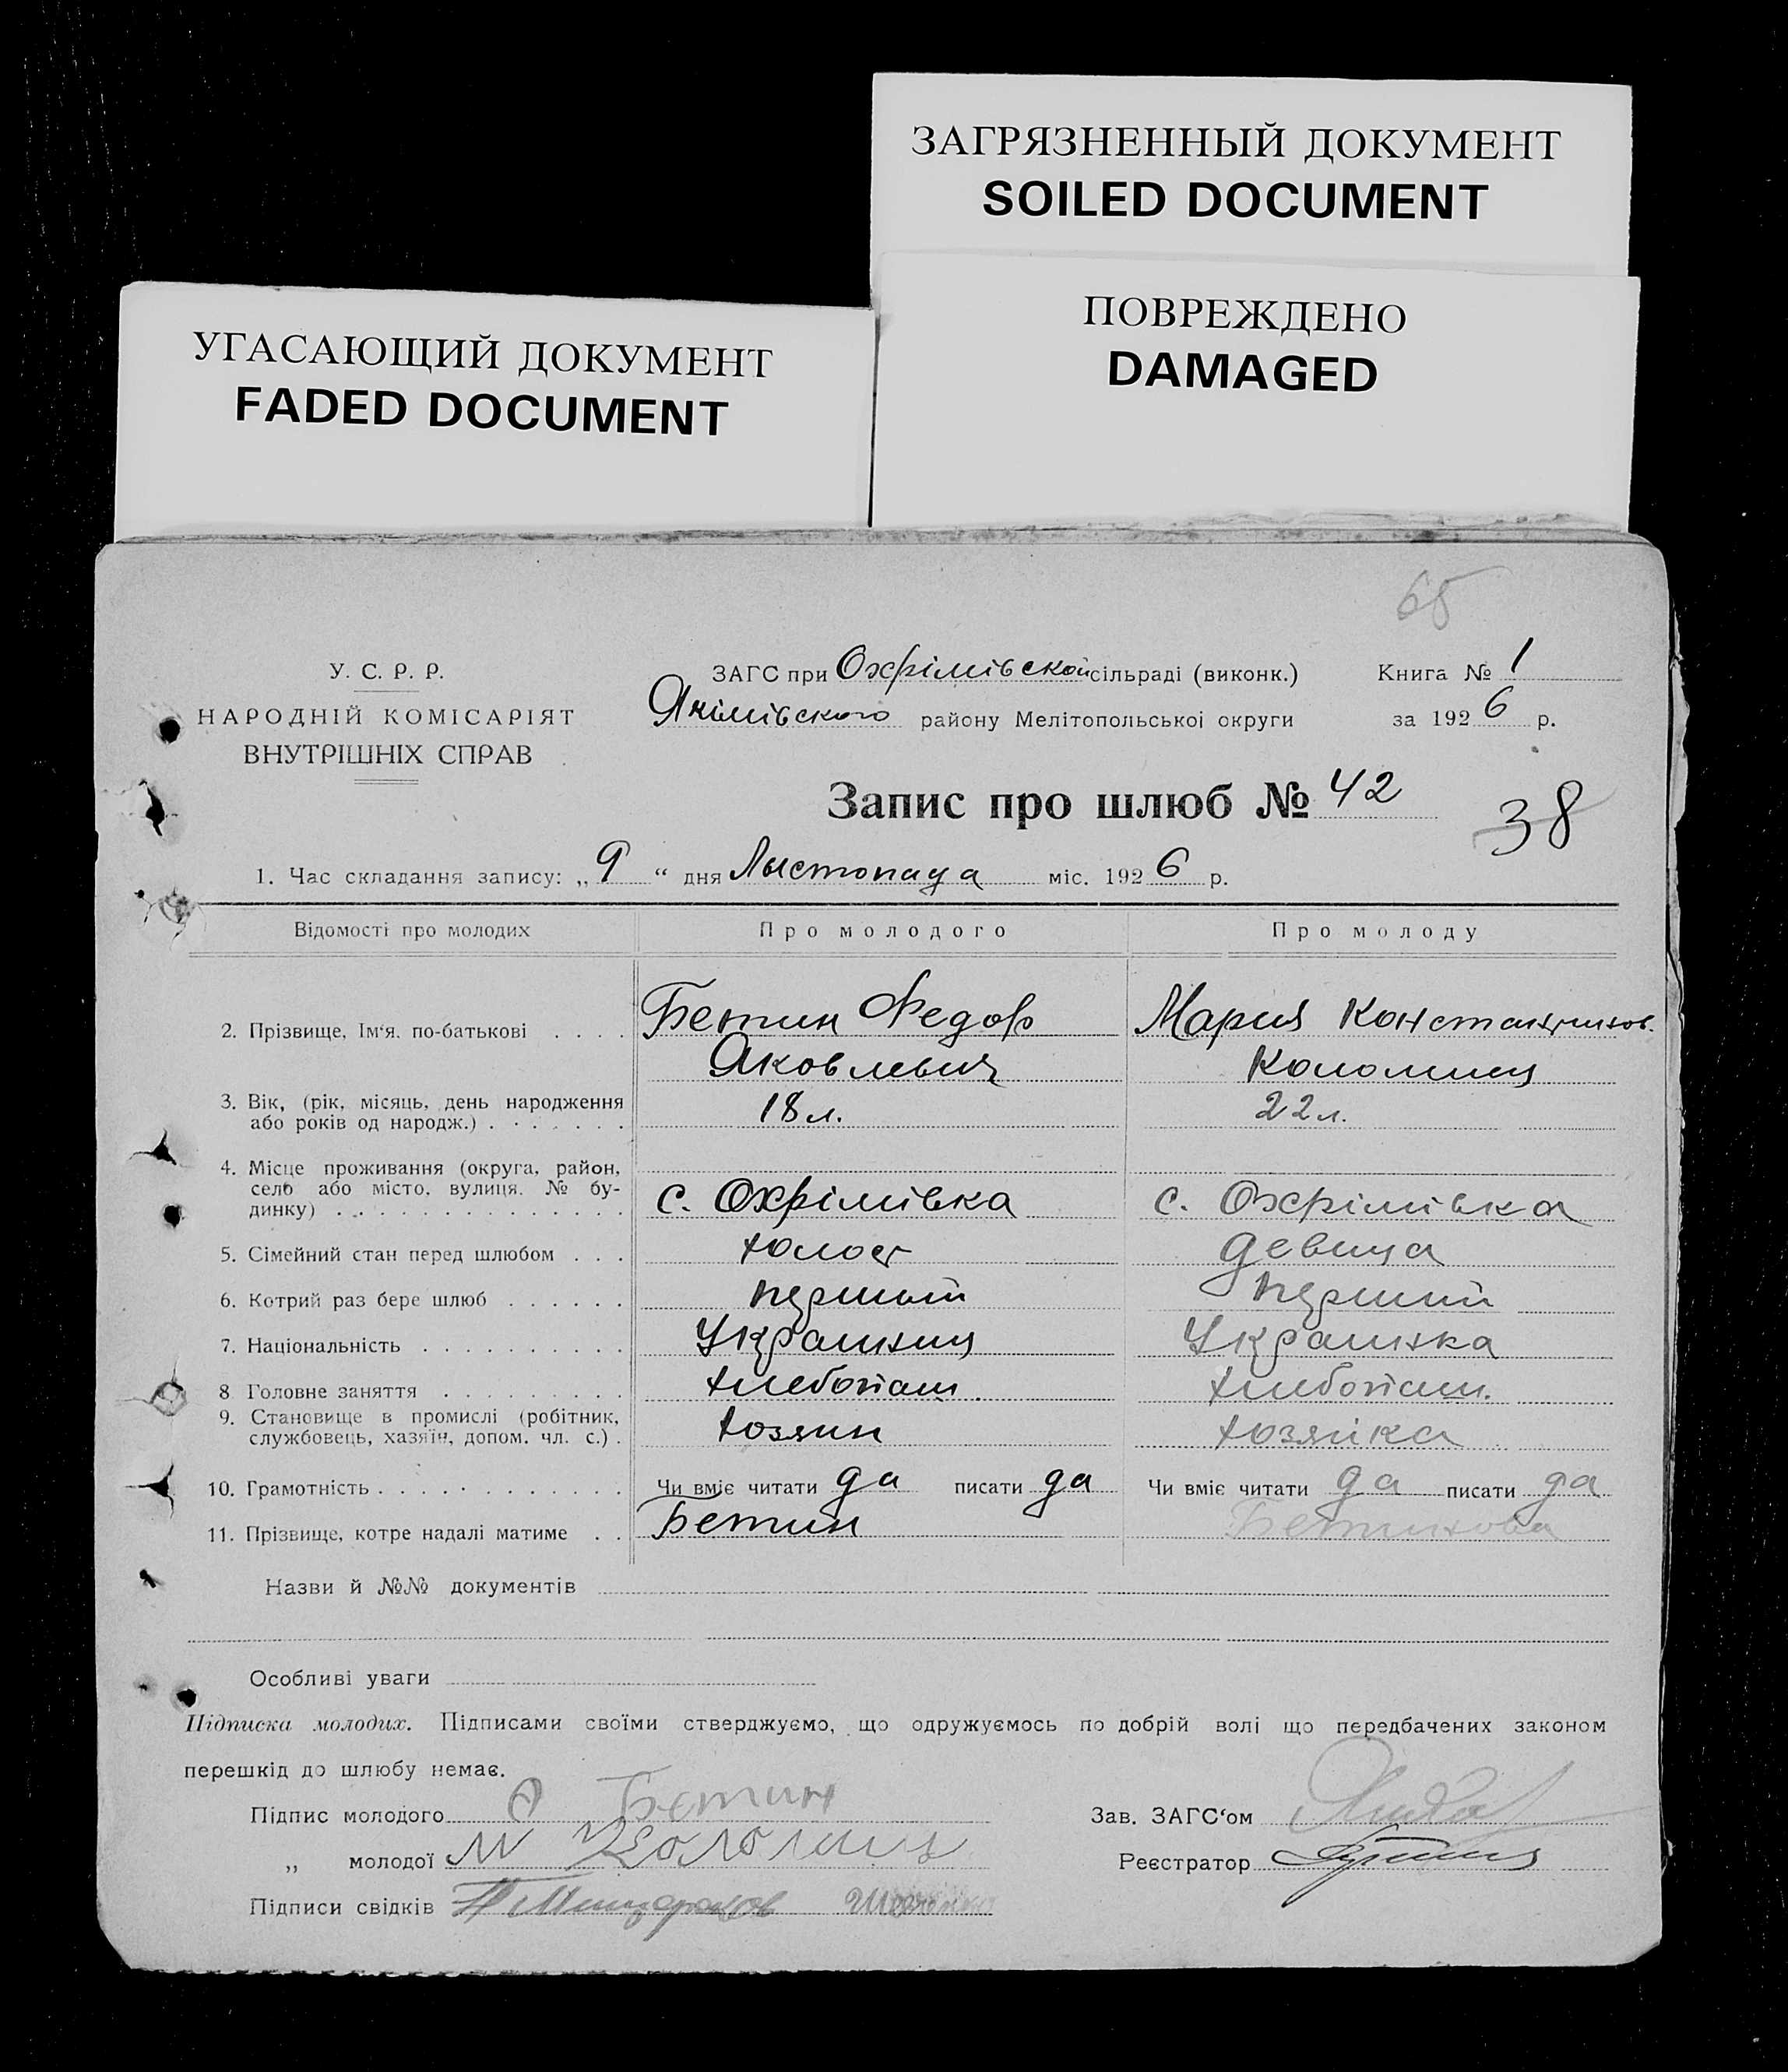 ЗАГРЯЗНЕННЫЙ ДОКУМЕНТ
SOILED DOCUMENT
ПОВРЕЖДЕНО
DAMAGED
УГАСАЮЩИЙ ДОКУМЕНТ
FADED DOCUMENT
65
У. С. Р. Р.
НАРОДНІЙ КОМІСАРІЯТ
ВНУТРІШНІХ СПРАВ
ЗАГС при Охрімівской сільраді (виконк.) Книга № 1
Якімівского району Мелітопольської округи за 1926 р.
Запис про шлюб № 42
38
1. Час складання запису: „ 9 “ дня Лыстопада міс. 1926 р.
Відомості про молодих Про молодого Про молоду
2. Прізвище, Ім‘я, по-батькові . . . . Бетин Федор Мария Константинов.
Яковлевич Коломиец
3. Вік, (рік, місяць, день народження
або років од народж.) . . . . . . . 18 л. 22 л.
4. Місце проживання (округа, район,
село або місто, вулиця, № бу-
динку) . . . . . . . . . . . . . . с. Охрімівка с. Охрімівка
5. Сімейний стан перед шлюбом . . . холост девица
6. Котрий раз бере шлюб . . . . . . перший перший
7. Національність . . . . . . . . . . Украинец Украинка
8 Головне заняття . . . . . . . . . хлебопаш. хлебопаш.
9. Становище в промислі (робітник,
службовець, хазяїн, допом. чл. с.) . хозяин хозяйка
10. Грамотність . . . . . . . . . . . . Чи вміє читати да писати да Чи вміє читати да писати да
11. Прізвище, котре надалі матиме . . Бетин Бетинова
Назви й №№ документів
Особливі уваги
Підписка молодих. Підписами своїми стверджуємо, що одружуємось по добрій волі що передбачених законом
перешкід до шлюбу немає.
Підпис молодого Бетин Зав. ЗАГС‘ом
„ молодої М Коломиец Реєстратор
Підписи свідків